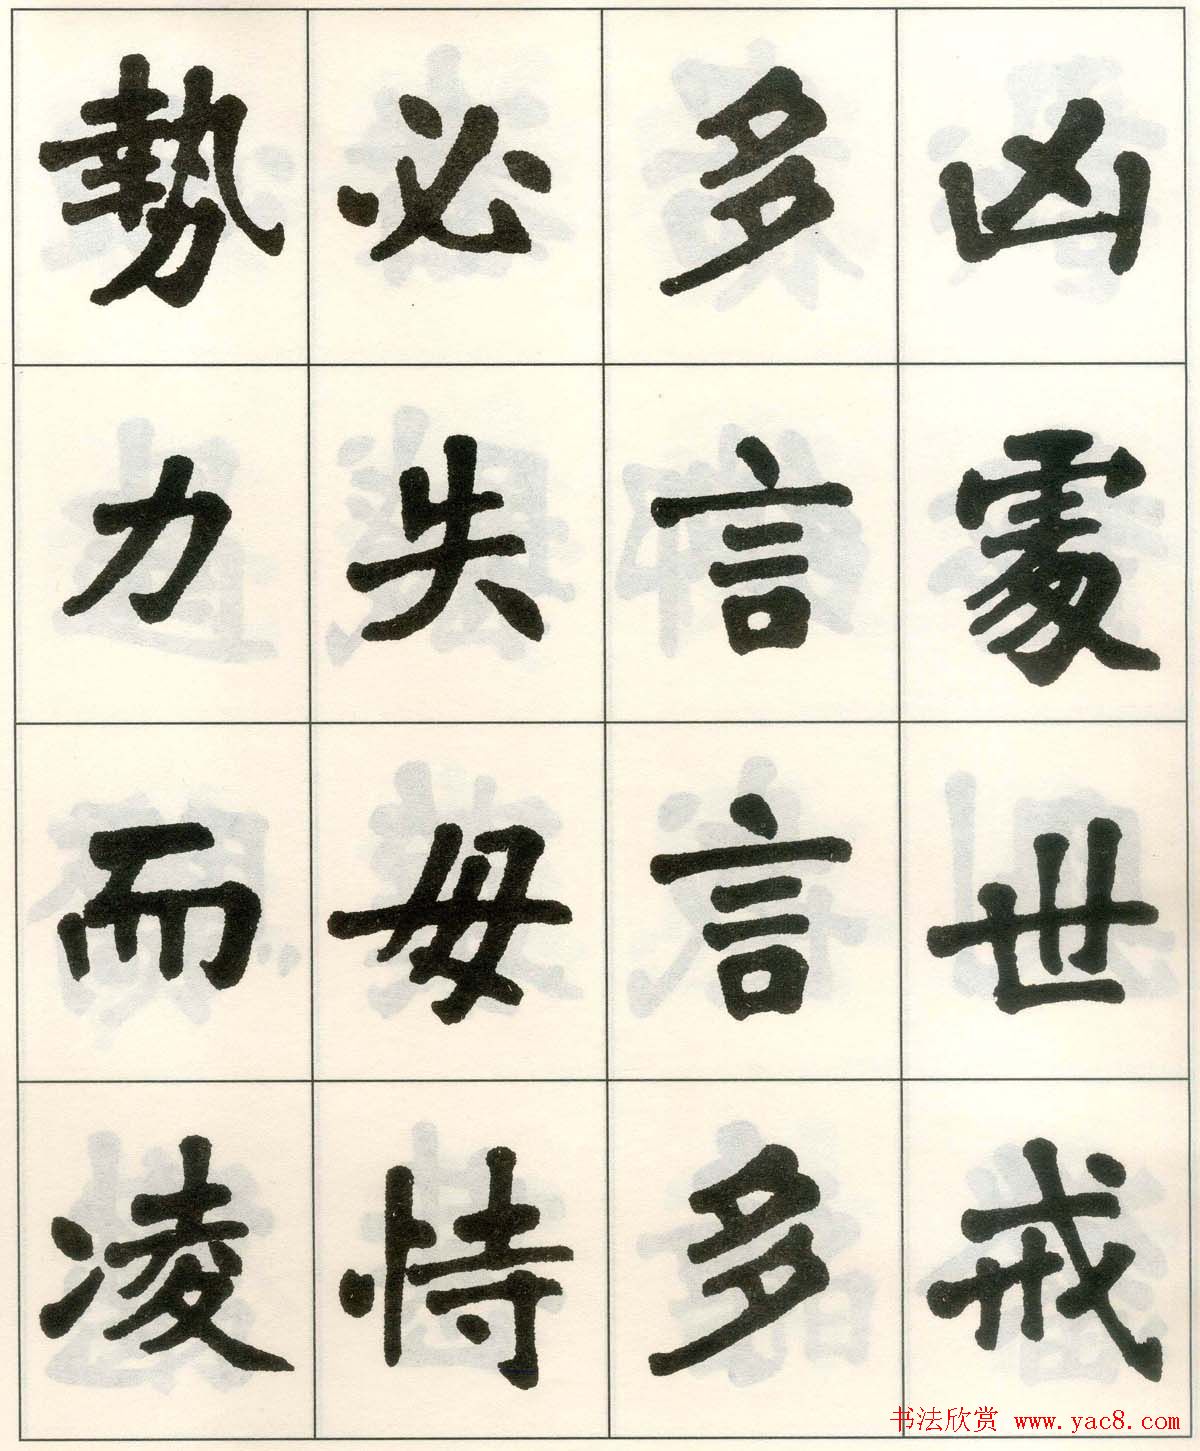 凶處世戒
多言言多
必失毋恃
勢力而凌
书法欣赏 www.yac8.com